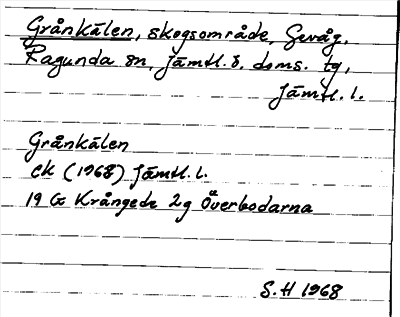 Grånkälen, skogsområde, Gevåg,
Ragunda sn, Jämtl. ö. doms. tg,
Jämtl. l.
Grånkälen
ek (1968) Jämtl. l.
19 G Krångede 2g Överbodarna
S. H 1968